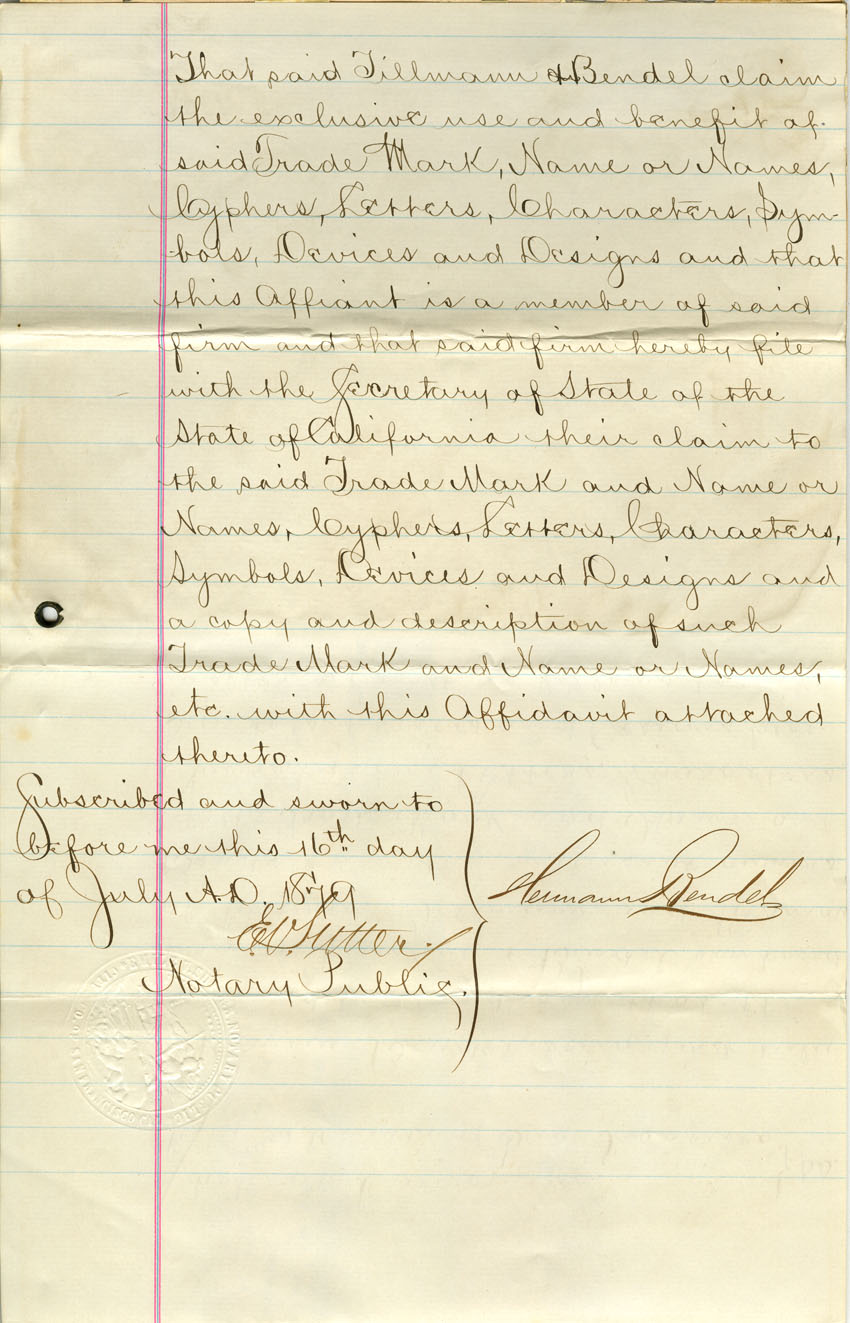 That said Tillmann & Bendel claim
the exclusive use and benefit of
said Trade Mark, Name or Names,
Cyphers, Letters, Characters, Sym-
bols, Devices and Designs and that
this Affiant is a member of said
firm and that said firm hereby file
with the Secretary of State of the
State of California their claim to
the said Trade Mark and Name or
Names, Cyphers, Letters, Characters,
Symbols, Devices and Designs and
a copy and description of such
Trade Mark and Name or Names,
etc. with this Affidavit attached
thereto.
Subscribed and sworn to
before me this 16th day
of July A.D. 1879
E.V. Sutter
Notary Public.
Hermann Bendel